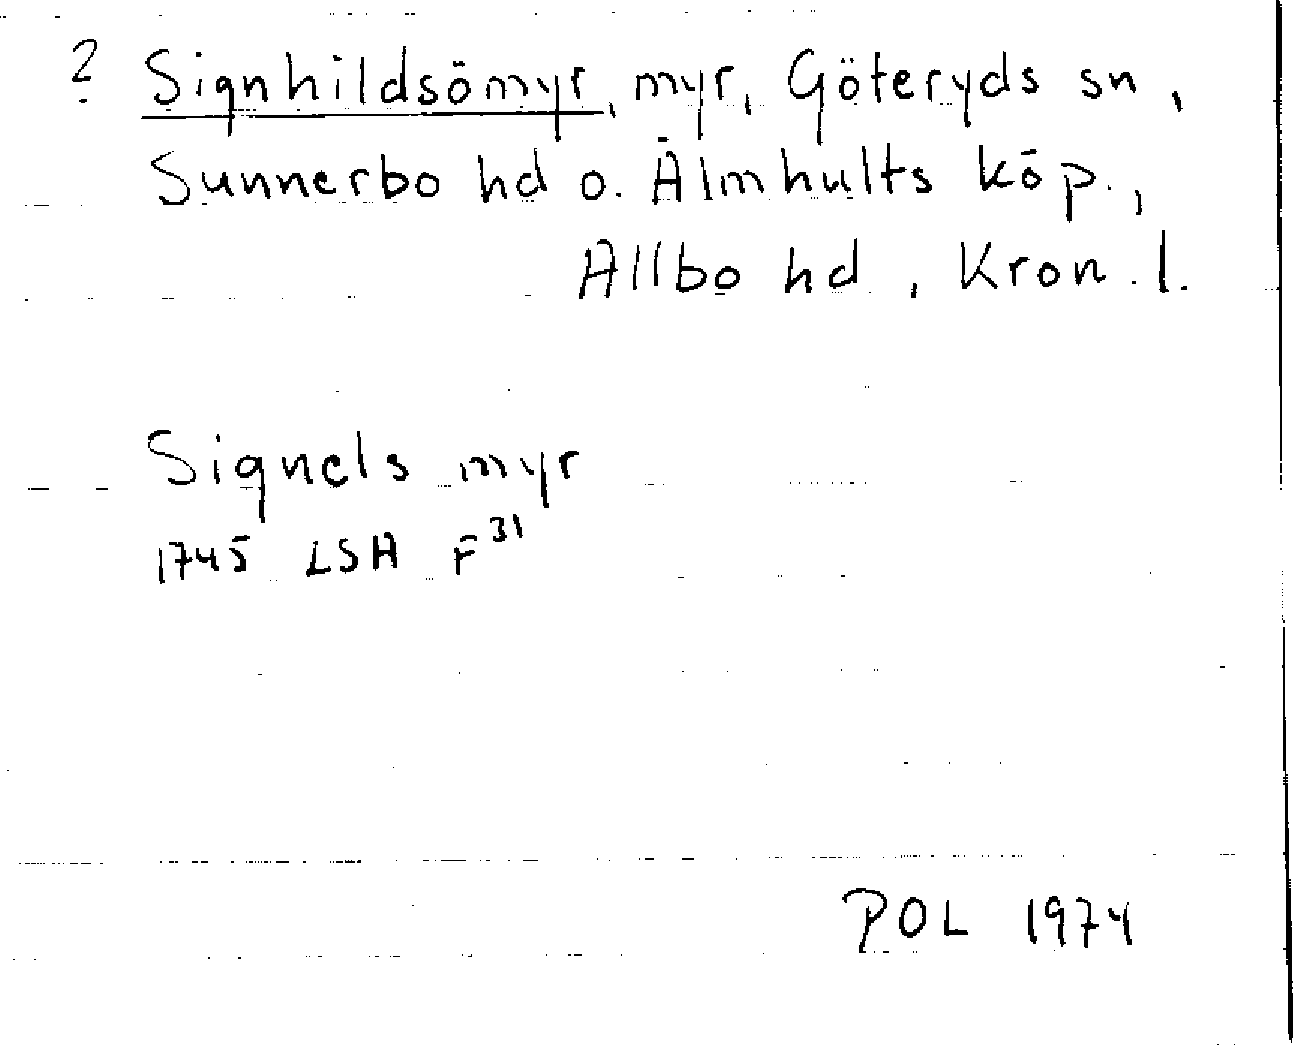 ? Signhildsömyr, myr, Göteryds sn,
Sunnerbo hd o. Älmhults köp.,
Allbo hd, Kron. l.
Signels myr
1745 LSA F 31
POL 1974